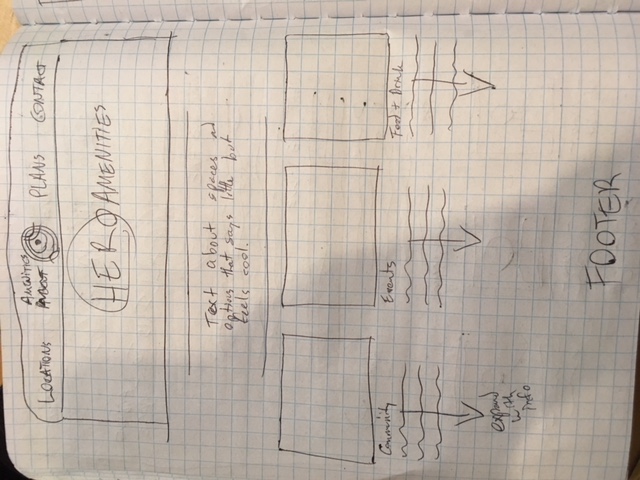 AMENITIES
LOCATIONS ABOUT PLANS CONTACT
HERO AMENITIES
Text about spaces and
options that says little but
feels cool.
Community Events Food + Drink
expand
with
info
FOOTER